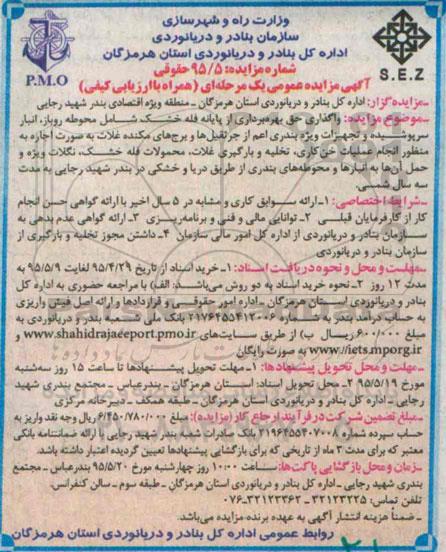 وزارت راه و شهرسازی
سازمان بنادر و دریانوردی
اداره کل بنادر و دریانوردی استان هرمزگان
P.M.O
S.E.Z
شماره مزایده: ۹۵/۵ حقوقی
آگهی مزایده عمومی یک مرحله‌ای (همراه با ارزیابی کیفی)
ـ مزایده گزار: اداره کل بنادر و دریانوردی استان هرمزگان ـ منطقه ویژه اقتصادی بندر شهید رجایی
ـ موضوع مزایده: واگذاری حق بهره‌برداری از پایانه فله خشک شامل محوطه روباز، انبار
سرپوشیده و تجهیزات ویژه بندری اعم از جرثقیل‌ها و برج‌های مکنده غلات به صورت اجاره به
منظور انجام عملیات خن‌کاری، تخلیه و بارگیری غلات، محمولات فله خشک، نگلات ویژه و
حمل آن‌ها به انبارها و محوطه‌های بندری از طریق دریا و خشکی در بندر شهید رجایی به مدت
سه سال شمسی.
ـ شرایط اختصاصی: ۱ـ ارائه سوابق کاری و مشابه در ۵ سال اخیر با ارائه گواهی حسن انجام
کار از کارفرمایان قبلی ۲ـ توانایی مالی و فنی و برنامه‌ریزی ۳ـ ارائه گواهی عدم بدهی به
سازمان بنادر و دریانوردی از اداره کل امور مالی سازمان ۴ـ داشتن مجوز تخلیه و بارگیری از
سازمان بنادر و دریانوردی
ـ مهلت و محل و نحوه دریافت اسناد: ۱ـ خرید اسناد از تاریخ ۹۵/۴/۲۹ لغایت ۹۵/۵/۹ به
مدت ۱۲ روز ۲ـ نحوه خرید اسناد به دو روش می‌باشد: الف) با مراجعه حضوری به اداره کل
بنادر و دریانوردی استان هرمزگان ـ اداره امور حقوقی و قراردادها و ارائه اصل فیش واریزی
به حساب درآمد بندر به شماره ۲۱۷۶۴۵۵۴۱۲۰۰۶ بانک ملی شعبه بندر و دریانوردی به مبلغ
۶۰۰/۰۰۰ ریال ب) از طریق سایت‌های www.shahidrajaeeport.pmo.ir و
www//iets.mporg.ir به صورت رایگان
ـ مهلت و محل تحویل پیشنهادها: ۱ـ مهلت تحویل پیشنهادها تا ساعت ۱۵ روز سه‌شنبه
مورخ ۹۵/۵/۱۹ ۲ـ محل تحویل اسناد: استان هرمزگان ـ بندرعباس ـ مجتمع بندری شهید
رجایی ـ اداره کل بنادر و دریانوردی استان هرمزگان ـ طبقه همکف ـ دبیرخانه مرکزی
ـ مبلغ تضمین شرکت در فرآیند ارجاع کار (مزایده): مبلغ ۶/۴۵۰/۷۸۰/۰۰۰ ریال وجه نقد واریز به
حساب سپرده شماره ۲۱۹۶۴۵۵۴۰۷۰۰۸ بانک صادرات شعبه بندر شهید رجایی یا ارائه ضمانتنامه بانکی
معتبر که برای مدت ۳ ماه از تاریخی که برای بازگشایی پیشنهادها تعیین گردیده اعتبار داشته باشد.
ـ زمان و محل بازگشایی پاکت‌ها: ساعت ۱۰:۰۰ روز چهارشنبه مورخ ۹۵/۵/۲۰ بندرعباس ـ مجتمع
بندری شهید رجایی ـ اداره کل بنادر و دریانوردی استان هرمزگان ـ طبقه سوم ـ سالن کنفرانس.
تلفن تماس: ۳۲۱۲۳۲۲۵ ـ ۰۷۶-۳۲۱۲۳۳۶۲
ـ ضمنا هزینه انتشار آگهی به عهده برنده مزایده می‌باشد.
روابط عمومی اداره کل بنادر و دریانوردی استان هرمزگان